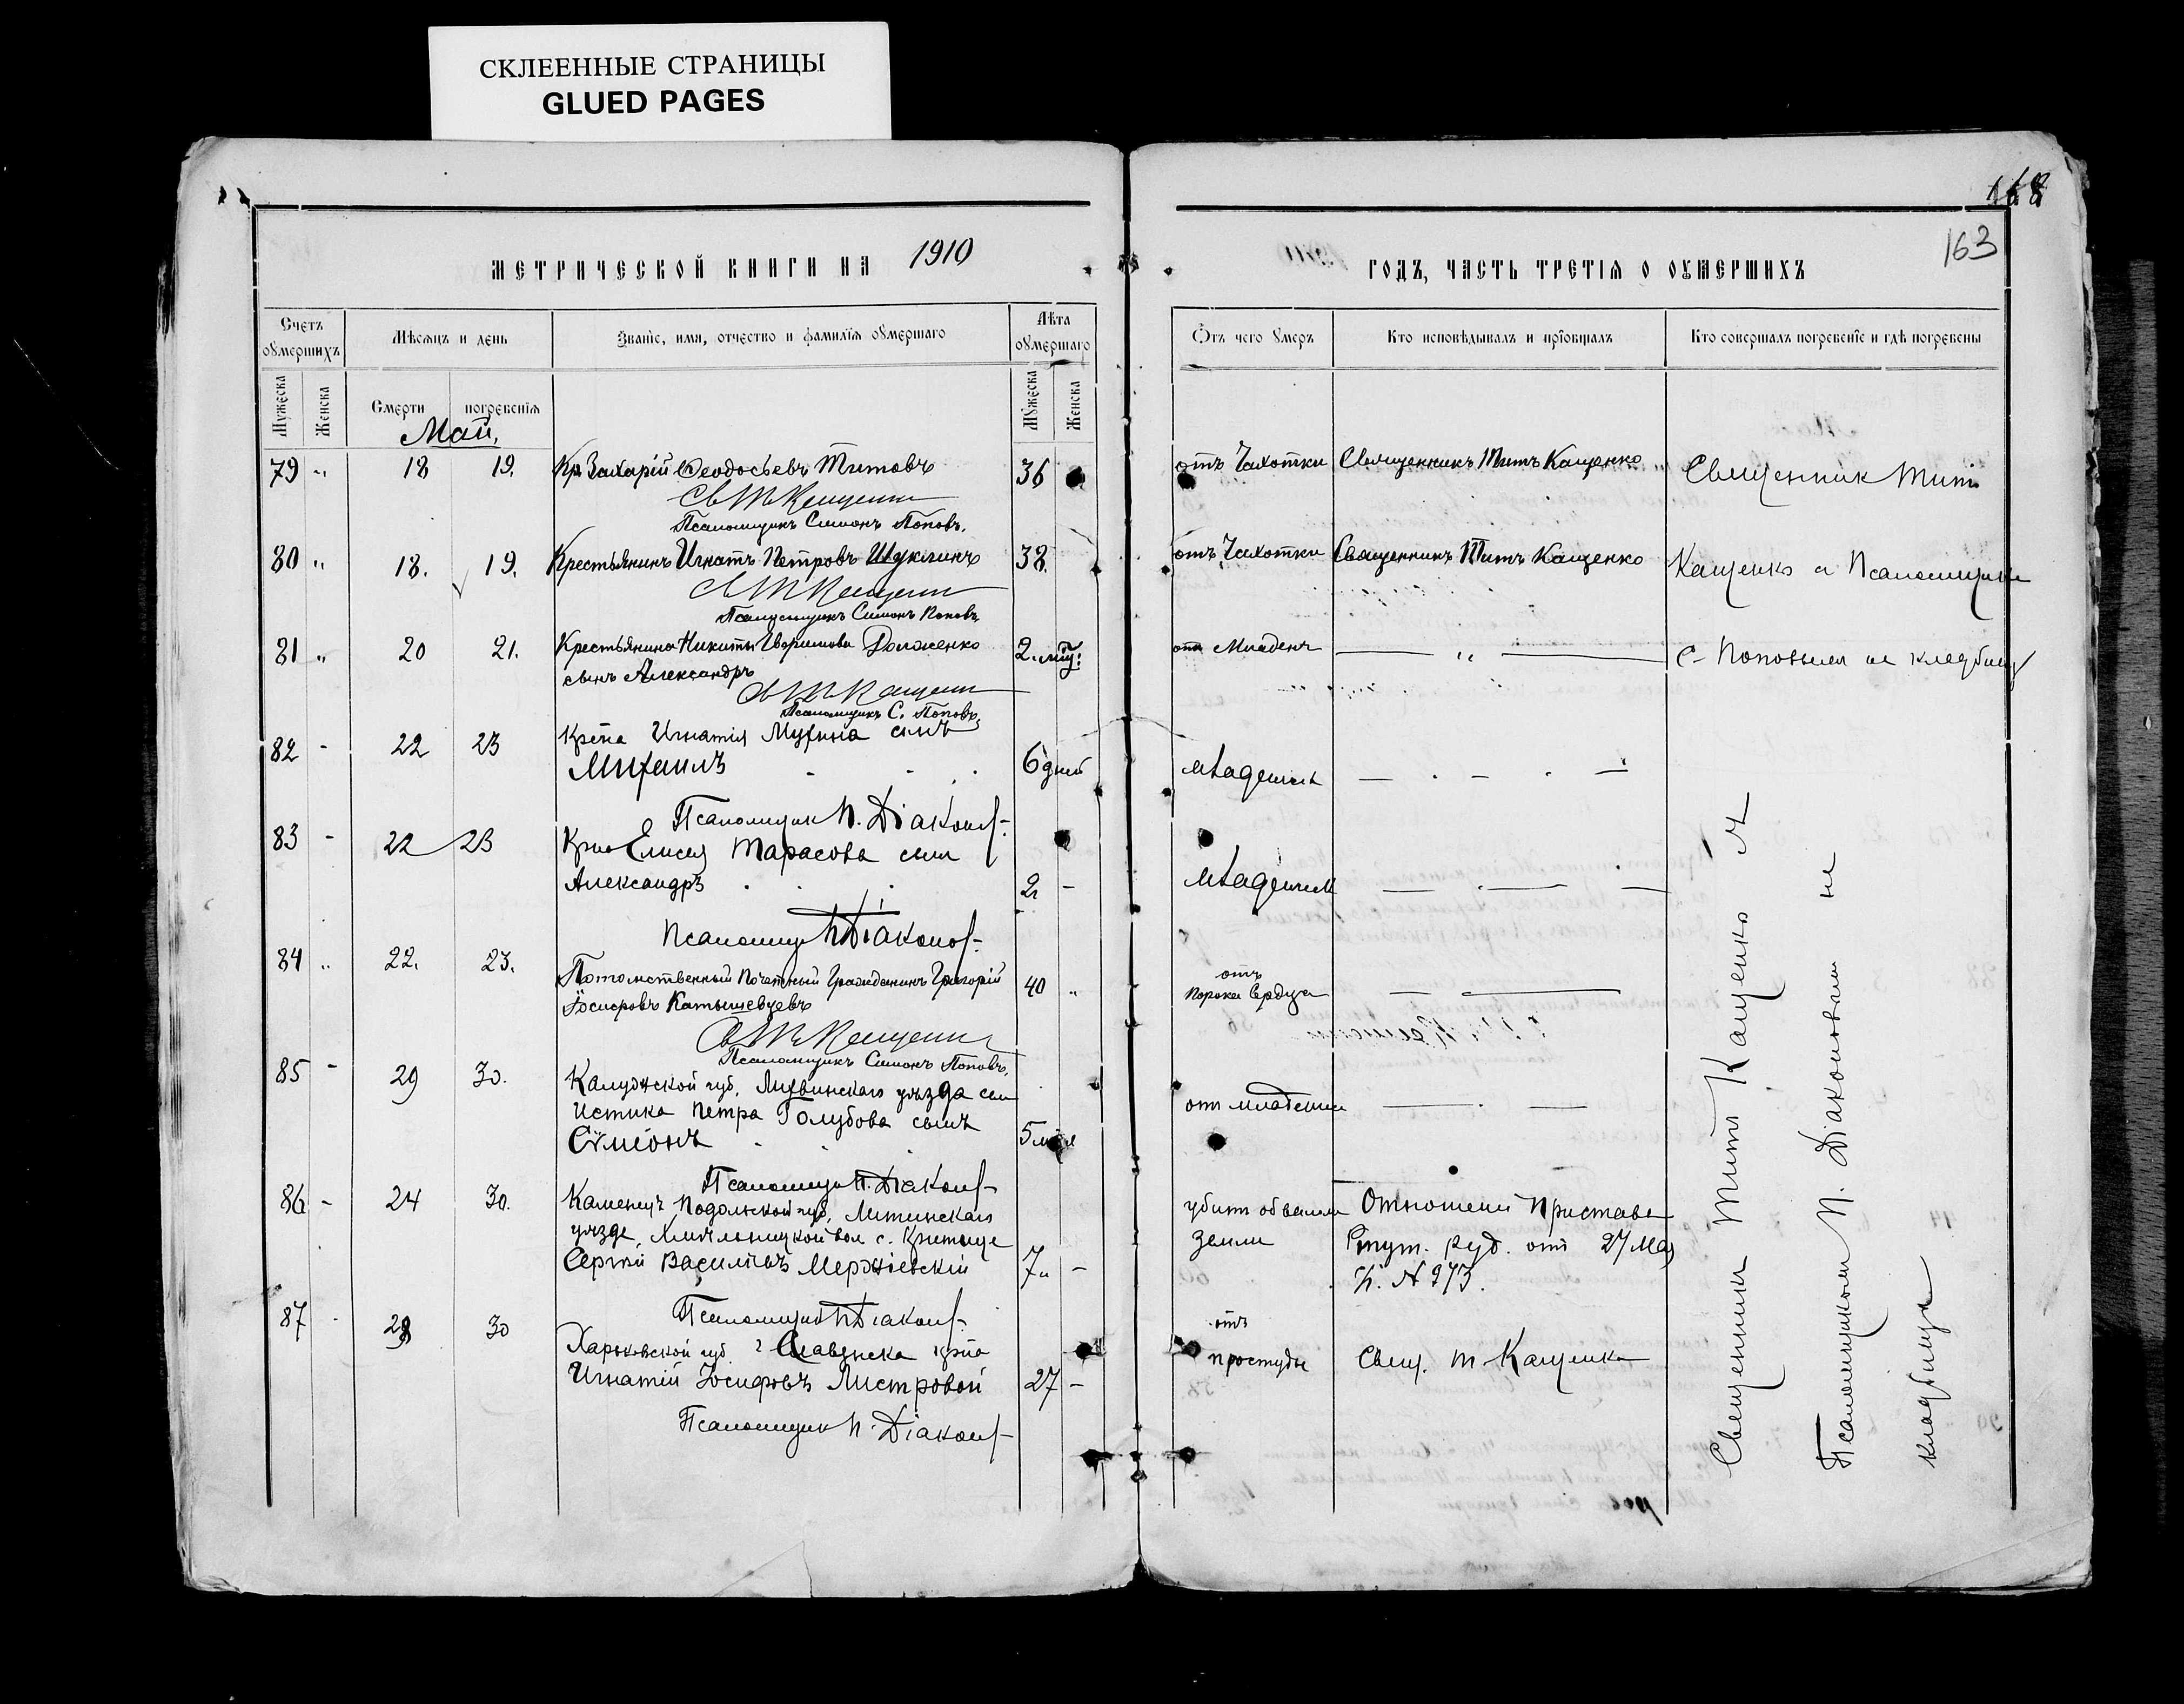 СКЛЕЕННЫЕ СТРАНИЦЫ
GLUED PAGES
МЕТРИЧЕСКОЙ КНИГИ НА 1910
Счетъ оумершихъ
Мѣсяцъ и день
Званіе, имя, отчество и фамилія оумершаго
Лѣта оумершаго
Мужеска
Женска
Смерти
погребенія
Мужеска
Женска
Май,
79 " 18 19. Кр. Захарій Ѳеодосьевъ Титовъ 36
Псаломщикъ Симонъ Поповъ.
80 " 18. 19. Крестьянинъ Игнатъ Петровъ Щукинъ 38.
Псаломщикъ Симонъ Поповъ
81 " 20 21. Крестьянина Никиты Долженко 2.
сынъ Александръ
Псаломщикъ С. Поповъ.
82 - 22 23 Крѣна Игнатія Мухина сынъ
Михаилъ 6 дней
Псаломщик П. Діаконов
83 - 22 23 Елисея Тарасова сын
Александръ 2 -
Псаломщ П. Діаконов
84 " 22. 23. Потомственный Почетный Гражданинъ Григорій
Іосифовъ Катышевцевъ 40 "
Псаломщикъ Симонъ Поповъ.
85 - 29 30. Калужской губ. уѣзда
Петра Голубова сынъ
Сѵмеонъ 5
Псаломщ П. Діаконов
86 - 24 30. Каменецъ Подольской губ. Литинскаго
уѣзда, вол. с.
Сергѣй Васильевъ Мержіевскій 7 -
Псаломщик П. Діаконов
87 - 30 Харьковской губ. г. Славянска
Игнатій Іосифовъ Листровой 27 -
Псаломщик П. Діаконов
168
163
ГОДЪ, ЧАСТЬ ТРЕТІЯ О ОУМЕРШИХЪ
Отъ чего умеръ
Кто исповѣдывалъ и пріобщалъ
Кто совершалъ погребеніе и гдѣ погребены
отъ Чахотки Священникъ Титъ Кащенко Священник Тит
отъ Чахотки Священникъ Титъ Кащенко Кащенко и Псаломщик
отъ Младен. — " — С. Поповым на кладбищ
младенч
младенч
отъ
Порока Сердца
отъ младенч
убит обвалом
земли
Отношеніе Пристава
Ртут. руд. отъ 27 Мая
№ 973.
отъ
простуды Свящ. Т. Кащенко
Священник Тит Кащенко
Псаломщиком П. Діаконовым на
кладбище